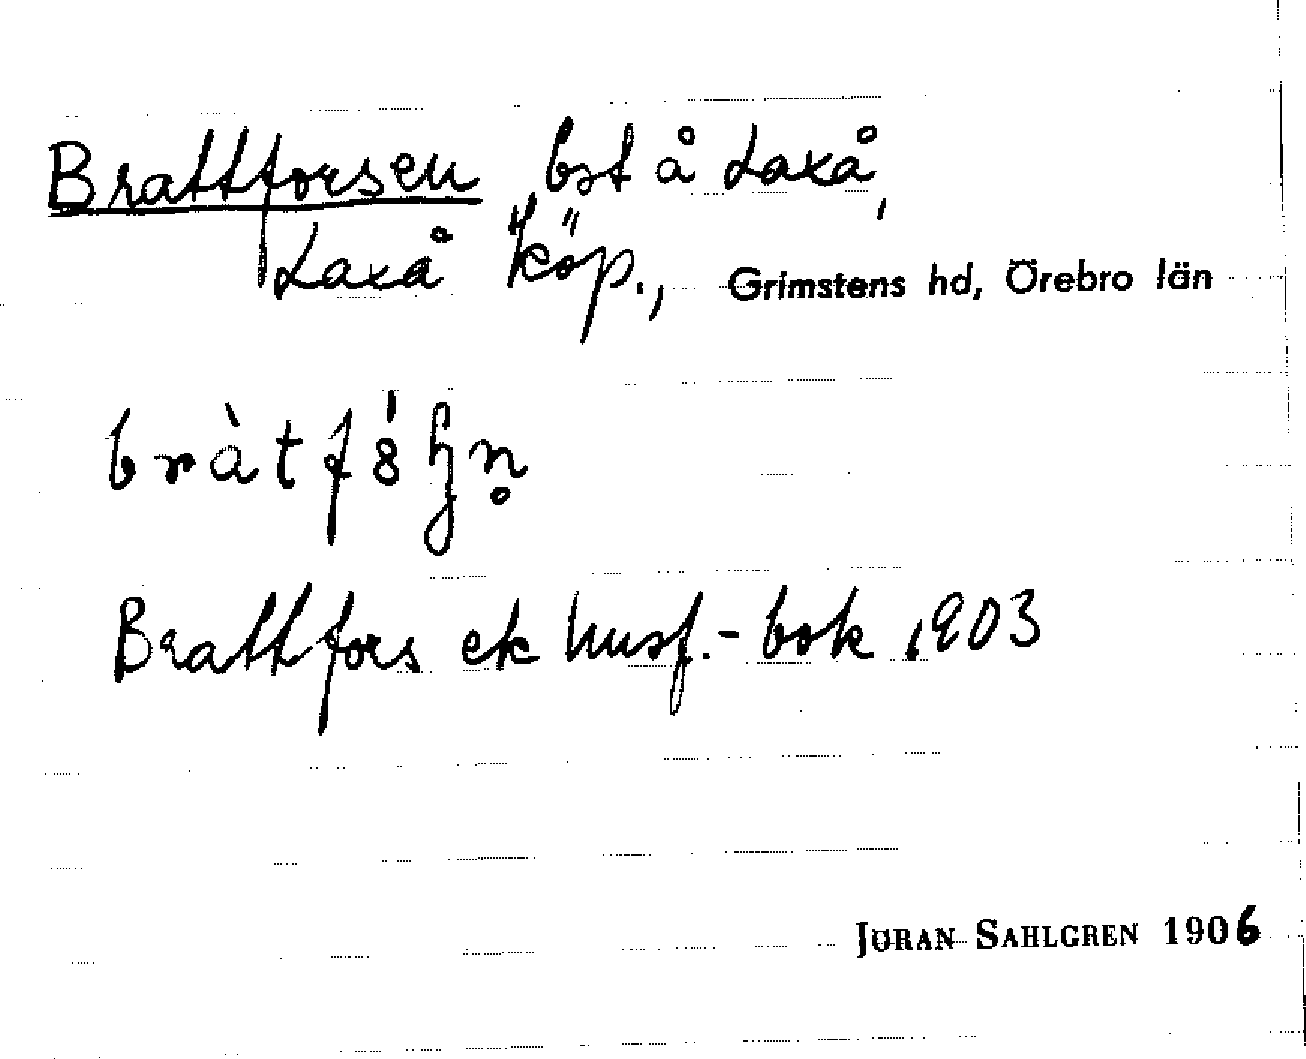 Brattforsen bst å Laxå,
Laxå köp., Grimstens hd, Örebro län
Brattfors ek husf.-bok 1903
JÖRAN SAHLGREN 1906